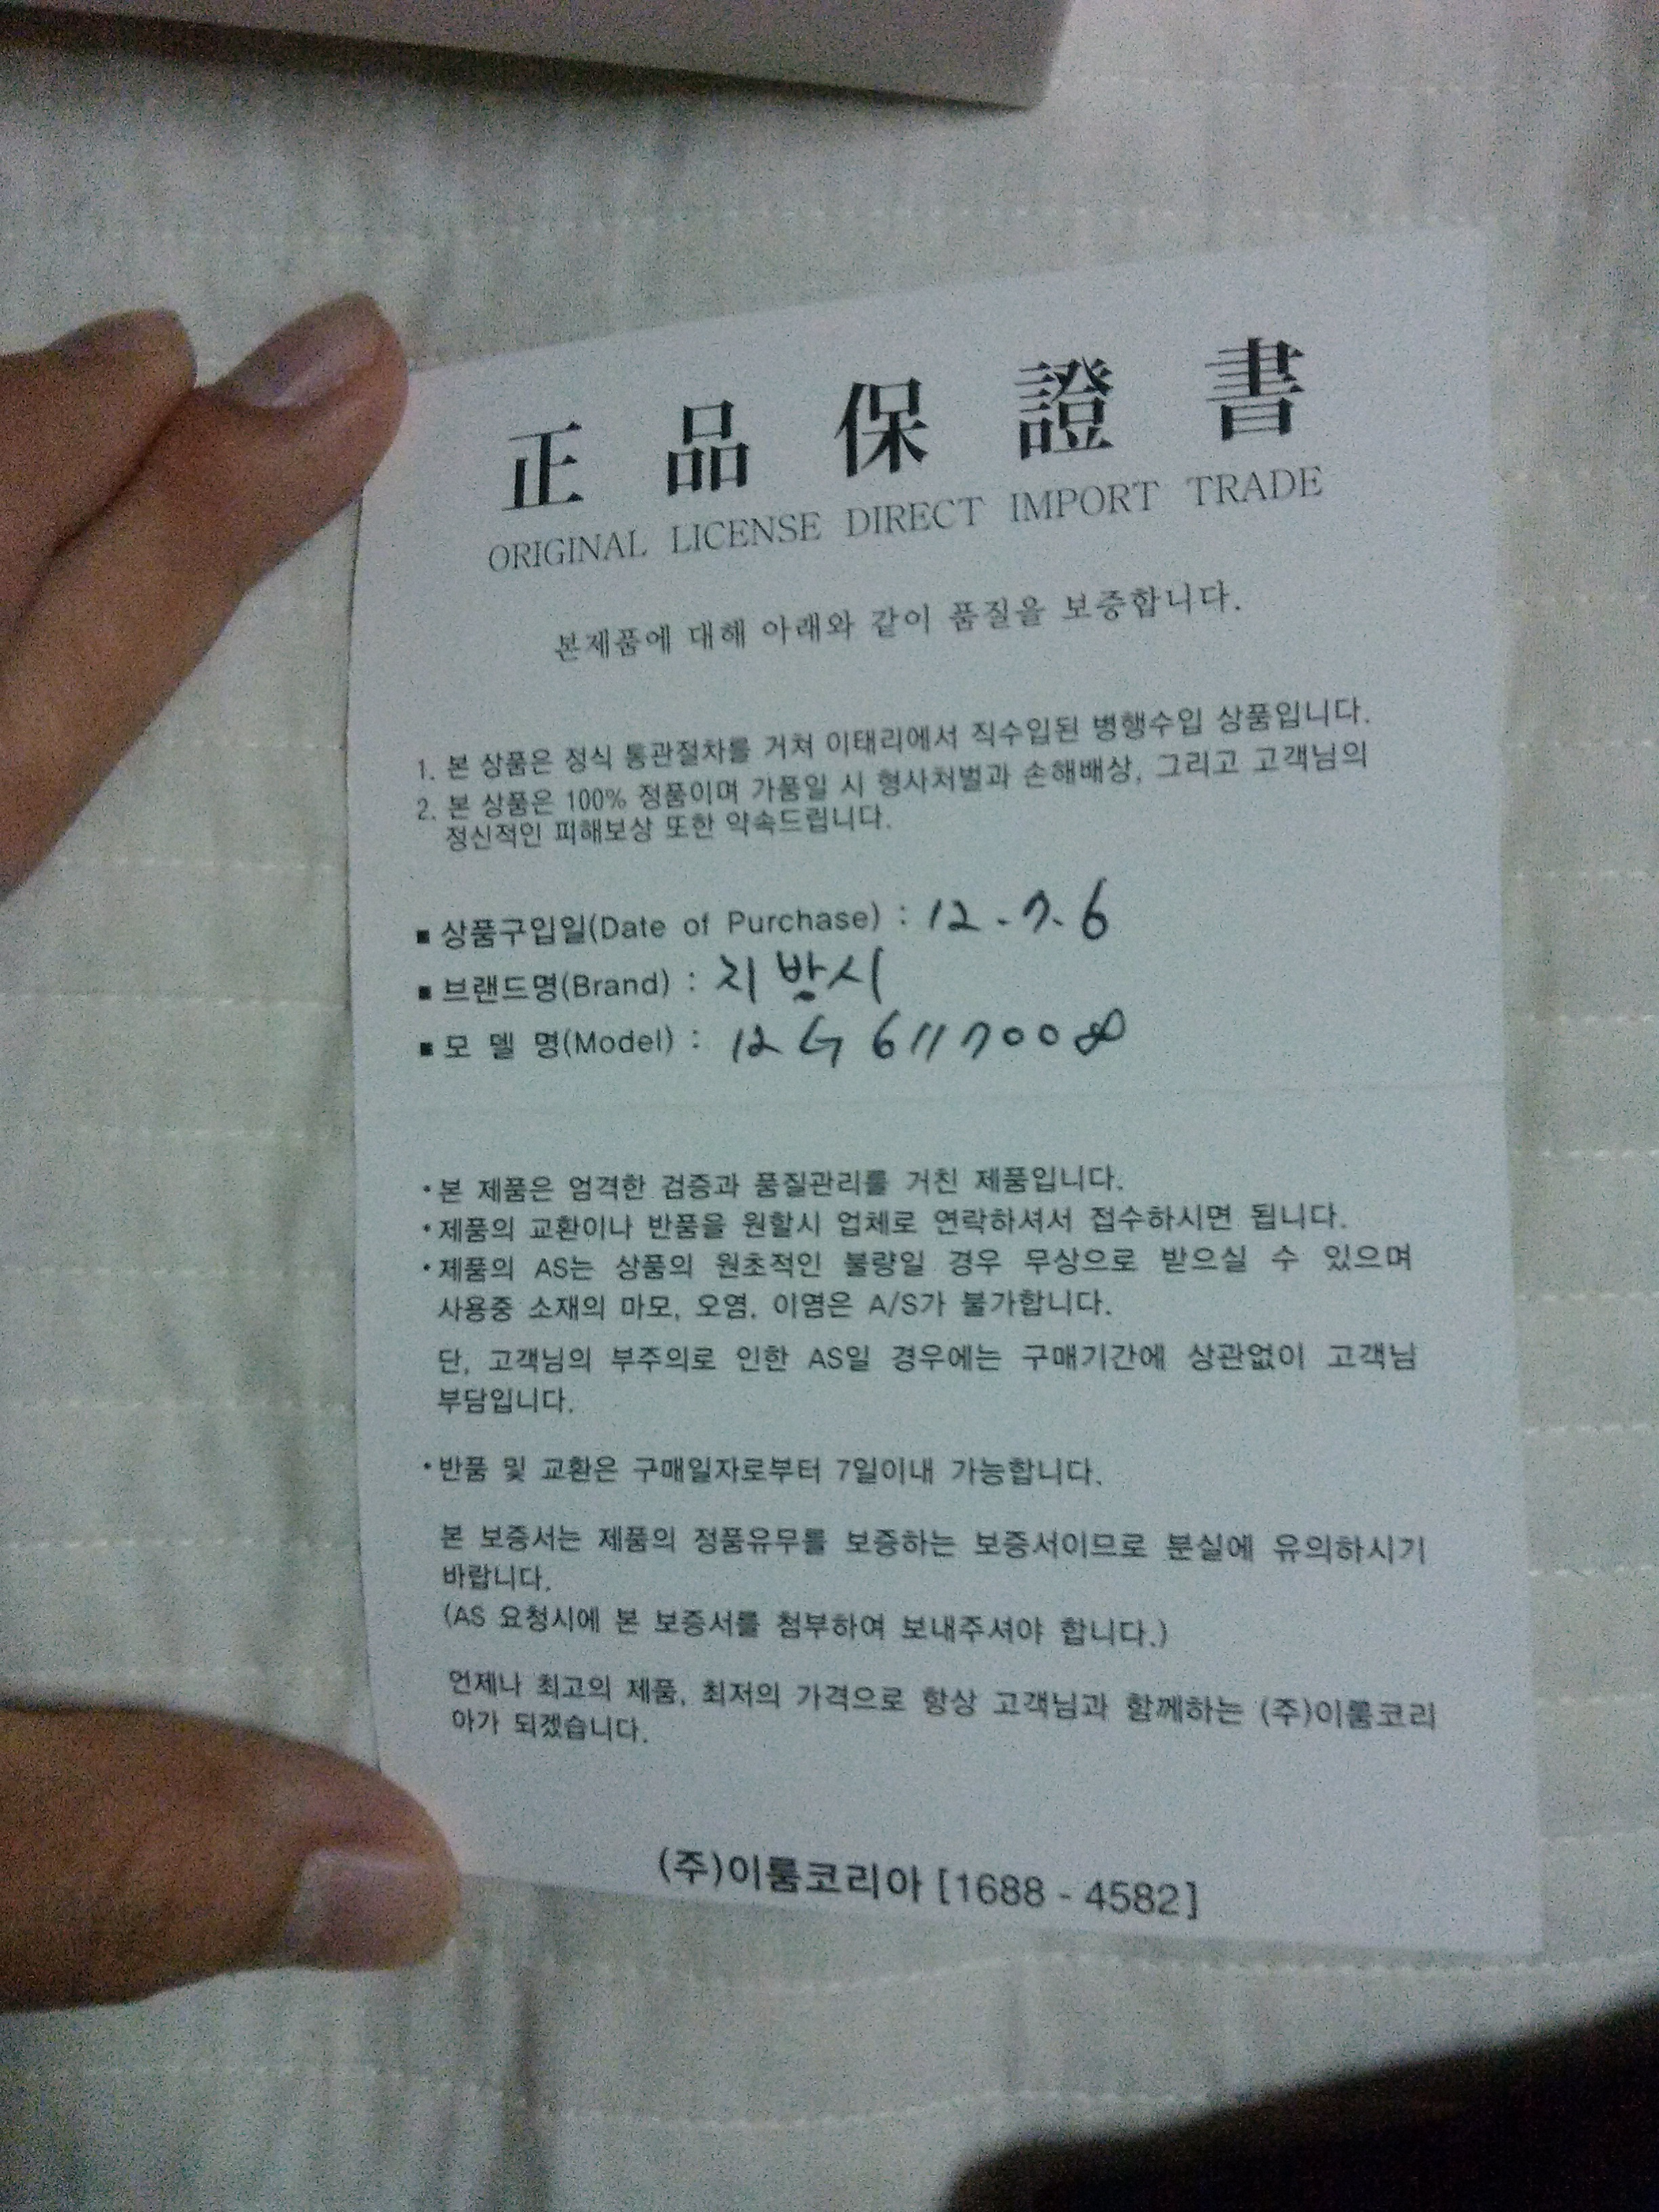 正品保證書
ORIGINAL LICENSE DIRECT IMPORT TRADE
본제품에 대해 아래와 같이 품질을 보증합니다.
1. 본 상품은 정식 통관절차를 거쳐 이태리에서 직수입된 병행수입 상품입니다.
2. 본 상품은 100% 정품이며 가품일 시 형사처벌과 손해배상, 그리고 고객님의
정신적인 피해보상 또한 약속드립니다.
■ 상품구입일(Date of Purchase) : 12.7.6
■ 브랜드명(Brand) : 지방시
■ 모 델 명(Model) : 12G6117008
• 본 제품은 엄격한 검증과 품질관리를 거친 제품입니다.
• 제품의 교환이나 반품을 원할시 업체로 연락하셔서 접수하시면 됩니다.
• 제품의 AS는 상품의 원초적인 불량일 경우 무상으로 받으실 수 있으며
사용중 소재의 마모, 오염, 이염은 A/S가 불가합니다.
단, 고객님의 부주의로 인한 AS일 경우에는 구매기간에 상관없이 고객님
부담입니다.
• 반품 및 교환은 구매일자로부터 7일이내 가능합니다.
본 보증서는 제품의 정품유무를 보증하는 보증서이므로 분실에 유의하시기
바랍니다.
(AS 요청시에 본 보증서를 첨부하여 보내주셔야 합니다.)
언제나 최고의 제품, 최저의 가격으로 항상 고객님과 함께하는 (주)이룸코리
아가 되겠습니다.
(주)이룸코리아 [1688 - 4582]